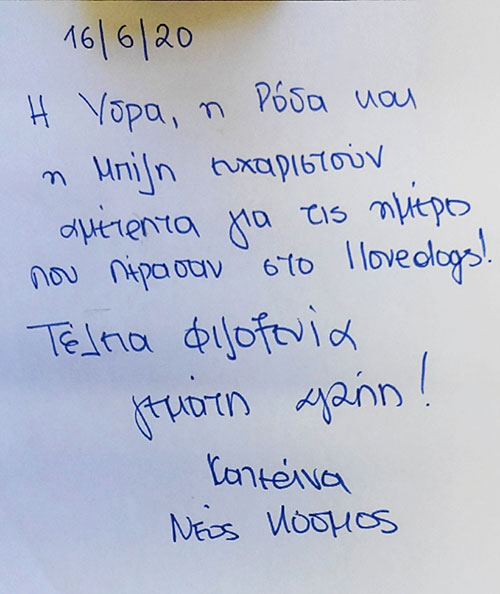 16/6/20
Η Υδρα, η Ρόδα και
η Μπίλη ευχαριστούν
αμέτρητα για τις ημέρες
που πέρασαν στο Ilovedogs!
Τέλεια φιλοξενία
γεμάτη αγάπη!
Κατερίνα
Νέος Κόσμος